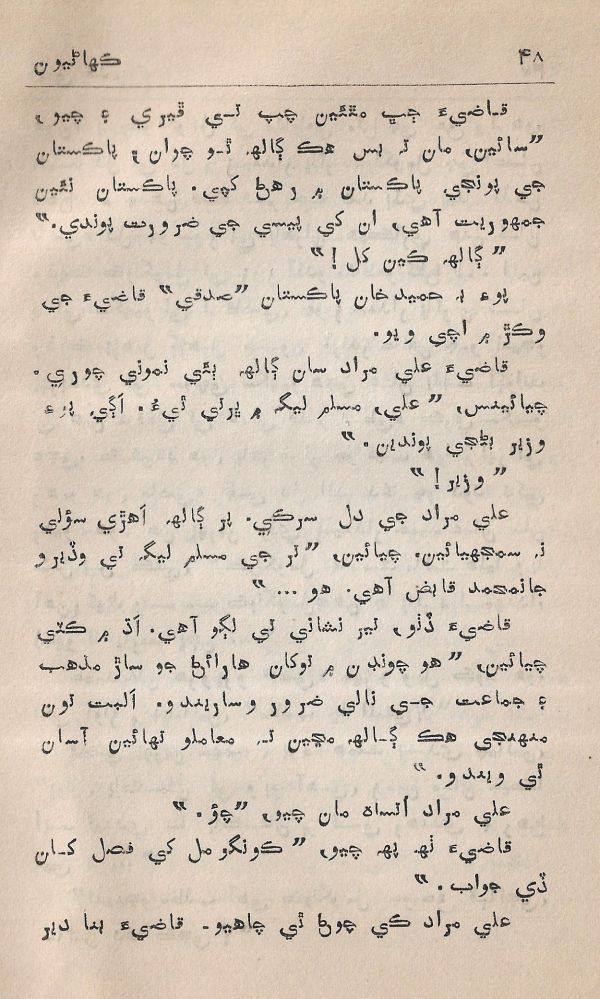 ۴۸
ڪهاڻيون
قاضيءَ جپ مٿئين چپ تي ڦيري ۽ چيو،
”سائين، مان تہ بس هڪ ڳالهہ ٿو چوان ۽ پاڪستان
جي پونجي پاڪستان ۾ رهڻ کپي. پاڪستان نئين
جمهوريت آهي، ان کي پيسي جي ضرورت پوندي.“
”ڳالهہ ڪين ڪل!“
پوءِ بہ حميدخان پاڪستان ”صدقي“ قاضيءَ جي
وڪڙ ۾ اچي ويو.
قاضيءَ علي مراد سان ڳالهہ ٻئي نموني چوري.
چيائينس، ”علي، مسلم ليگہ ۾ ڀرتي ٿيءُ. اڳي پوءِ
وزير بڻجي پوندين.“
”وزير!“
علي مراد جي دل سرڪي. پر ڳالهہ اهڙي سؤلي
نہ سمجهيائين. چيائين، ”تر جي مسلم ليگہ تي وڏيرو
جانمحمد قابض آهي. هو ...“
قاضيءَ ڏٺو، تير نشاني تي لڳو آهي. اڌ ۾ ڪٽي
چيائين، ”هو چونڊن ۾ توکان هارائڻ جو ساڙ مذهب
۽ جماعت جي نالي ضرور وساريندو. البت تون
منهنجي هڪ ڳالهہ مڃين تہ معاملو تهائين آسان
ٿي ويندو.“
علي مراد اتساهہ مان چيو، ”چؤ.“
قاضيءَ ٺهہ پهہ چيو، ”ڪونگو مل کي فصل کان
ڏي جواب.“
علي مراد ڪي چوڻ ٿي چاهيو۔ قاضيءَ بنا دير